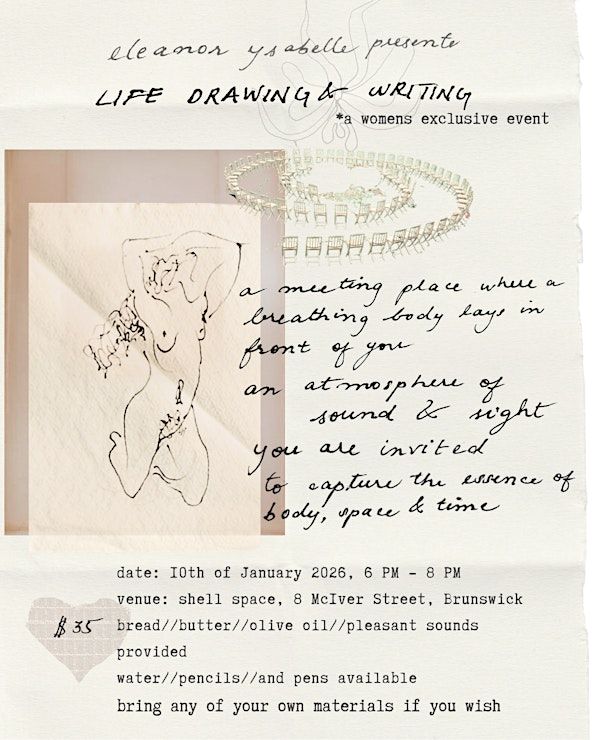 eleanor ysabelle presente
LIFE DRAWING & WRITING
*a womens exclusive event
a meeting place where a
breathing body lays in
front of you
an atmosphere of
sound & sight
you are invited
to capture the essence of
body, space & time
date: 10th of January 2026, 6 PM – 8 PM
venue: shell space, 8 McIver Street, Brunswick
$35
bread//butter//olive oil//pleasant sounds
provided
water//pencils//and pens available
bring any of your own materials if you wish